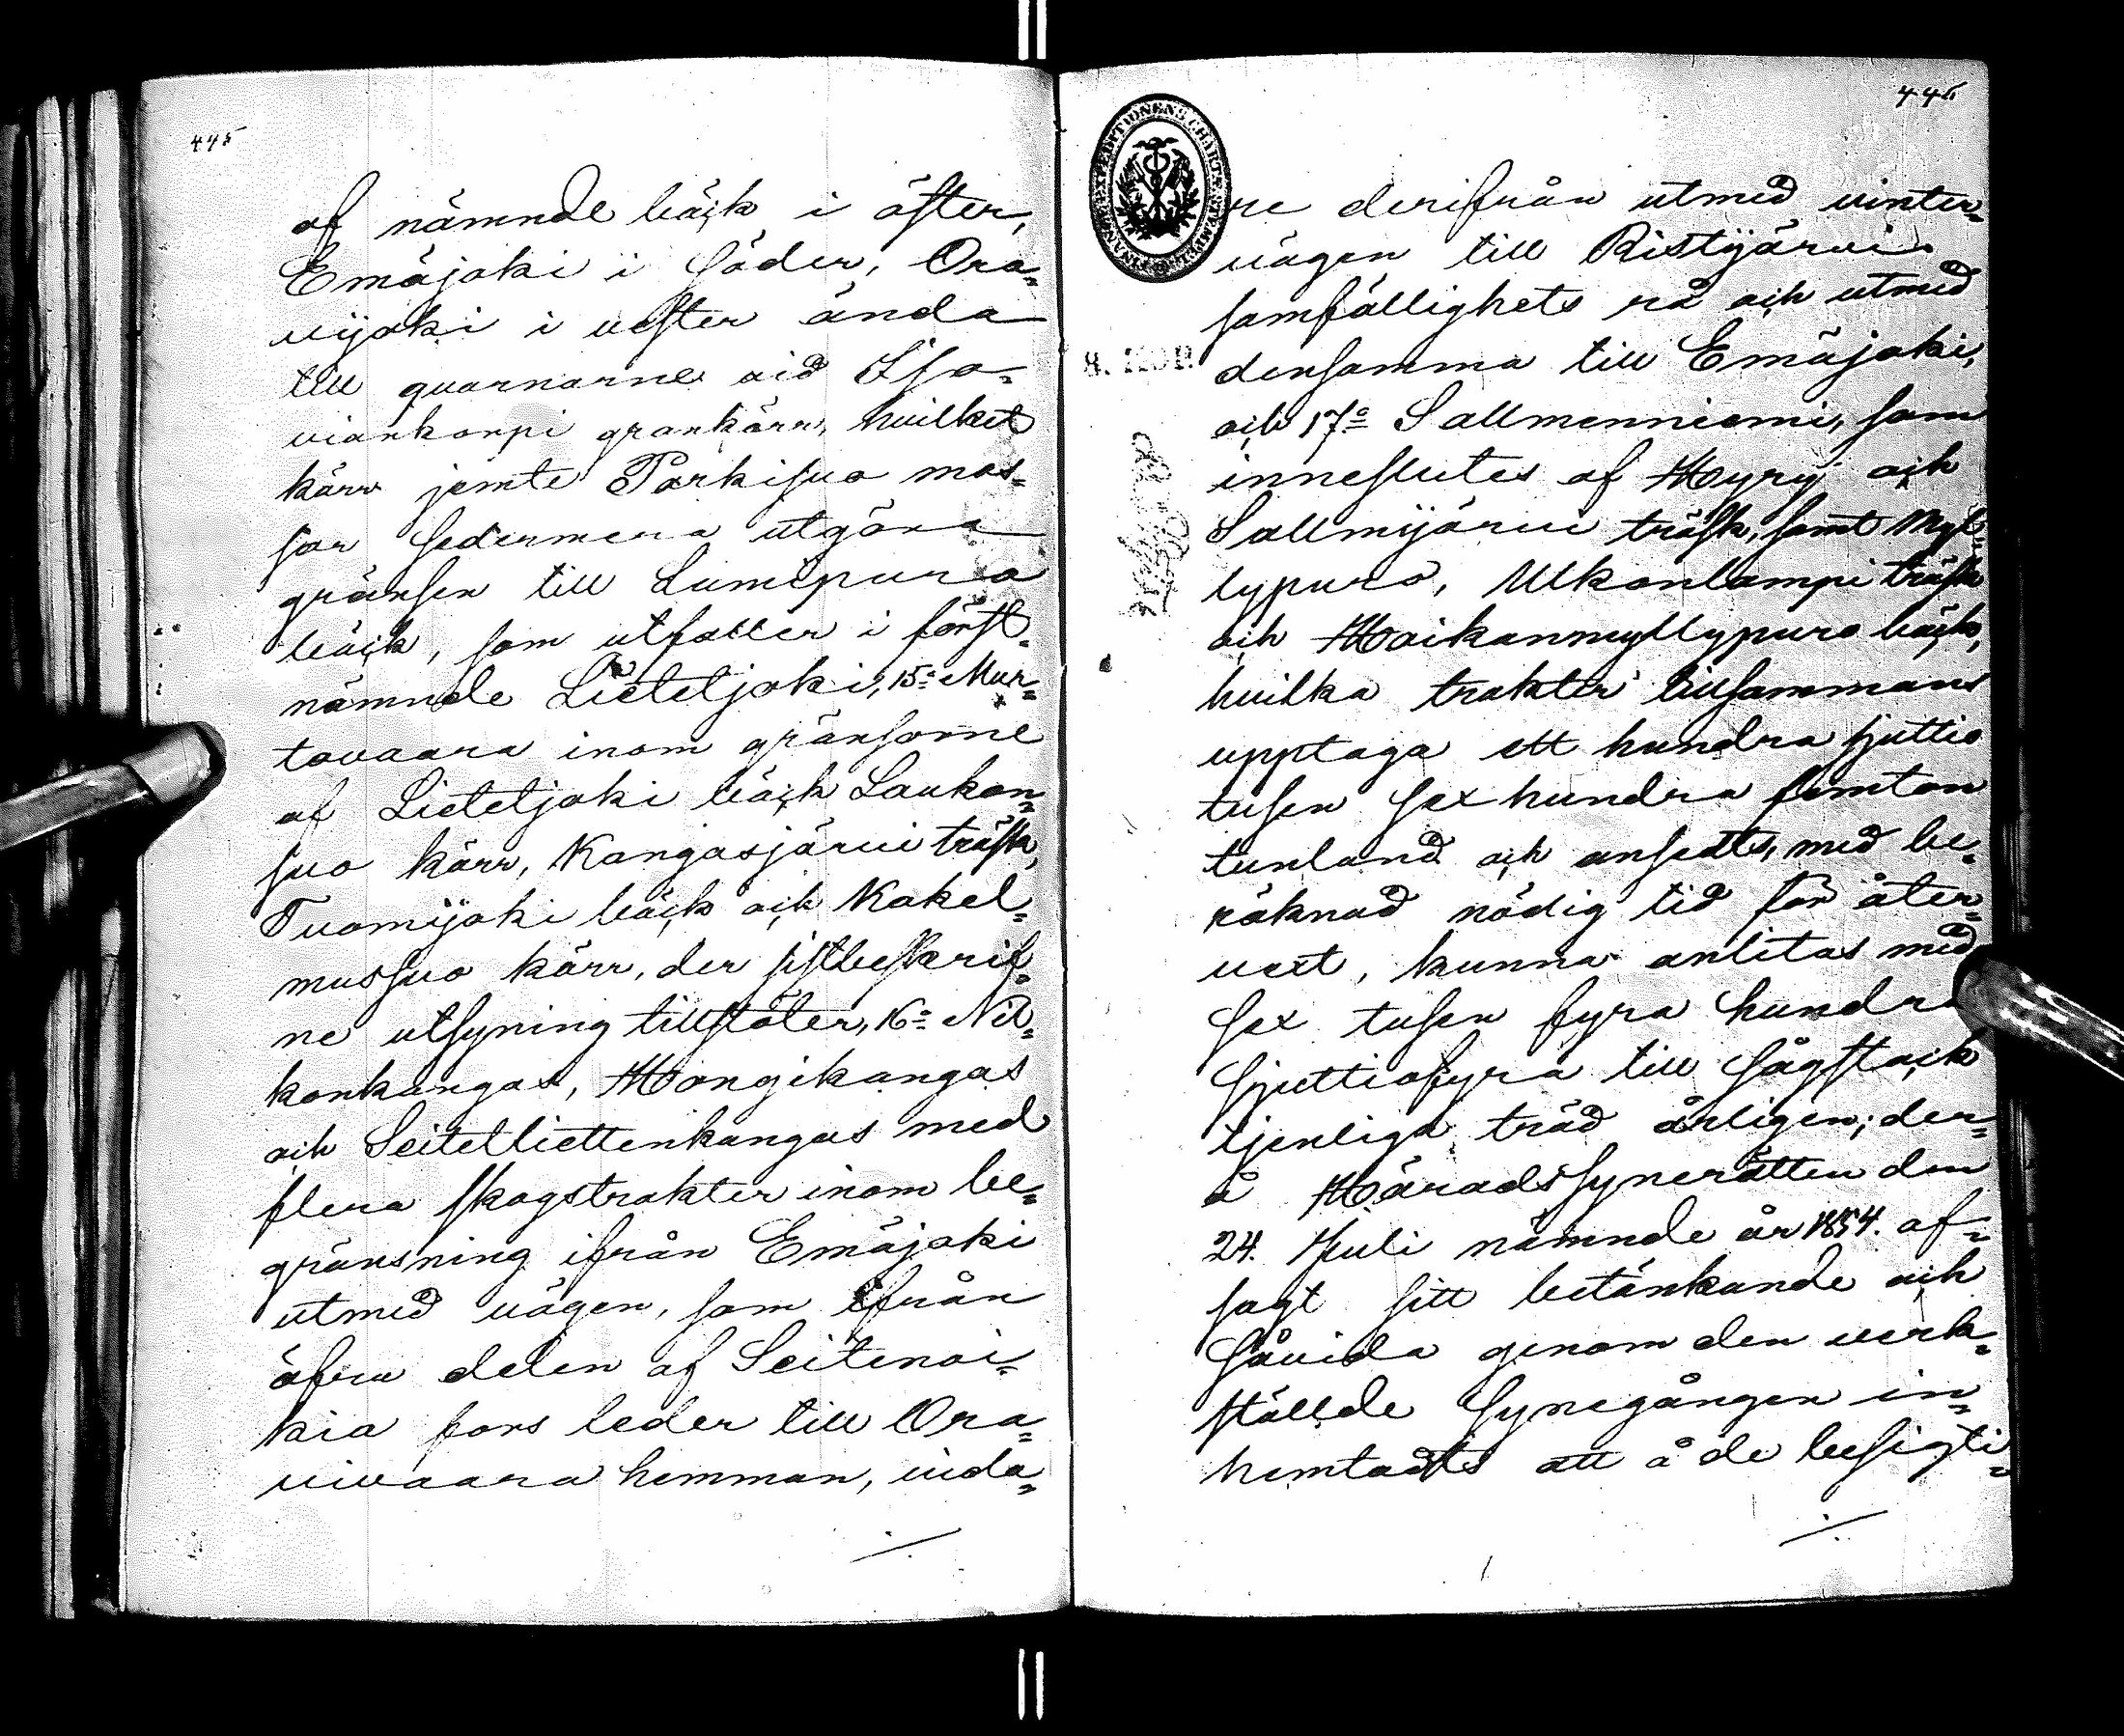 445
af nämnde bäck i öster,
Emäjoki i söder, Ora=
vijoki i vester ända
till qvarnarne vid Iso=
viankorpi grankärr, hvilket
kärr jemte Parkisuo mos=
sar sedermera utgöra
gränsen till Lumipuro
bäck, som utfaller i först=
nämnde Lietetjoki, 15:o Mur=
tovaara inom gränsorne
af Lietetjoki bäck Laukon=
suo kärr, Kangasjärvi träsk,
Tuomijoki bäck och Kakel=
mussuo kärr, der sistbeskrif=
ne utsyning tillstöter, 16:o Nis=
konkangas, Hongikangas
och Seitelliettenkangas med
flera skogstrakter inom be=
gränsning ifrån Emäjoki
utmed vägen, som ifrån
öfra delen af Seitenoi=
kia fors leder till Ora=
vivaara hemman, vida=
./.
446
FINANS EXPEDITIONENS CHARTÆ STÄMPEL
re derifrån utmed vinter=
vägen till Ristijärvi
samfällighets rå och utmed
8. KOP.
densamma till Emäjoki,
och 17:o Sallmenniemi, som
inneslutes af Hyry och
Sallmijärvi träsk, samt Myl=
lypuro, Ukonlampi träsk
och Haikanmyllypuro bäck,
hvilka trakter tillsammans
upptaga ett hundra sjuttio
tusen sex hundra femton
tunland och ansetts, med be=
räknad nödig tid för åter=
vext, kunna anlitas med
sex tusen fyra hundra
sjuttiofyra till sågstock
tjenliga träd årligen; der=
å Häradssynerätten den
24. Juli nämnde år 1854. af=
sagt sitt betänkande och
såvida genom den verk=
ställde synegången in=
hemtadts att å de besigti=
./.